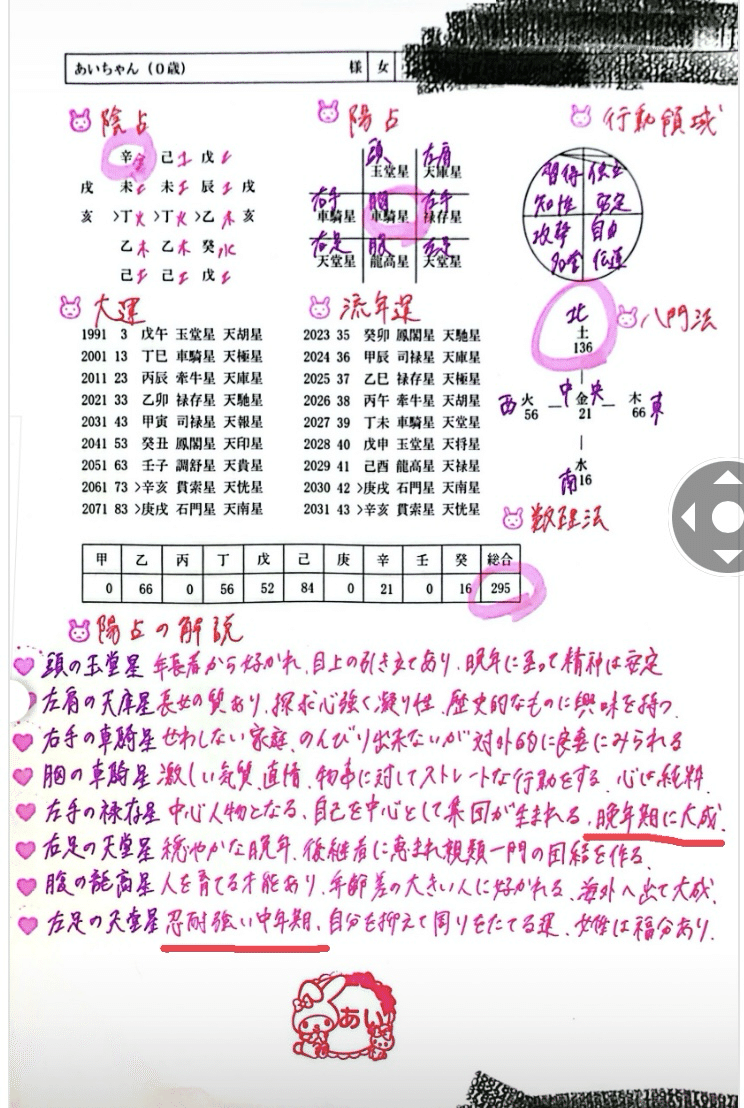 あいちゃん（0歳） 様 女
陰占 陽占 行動領域
辛 己土 戊土
戌 未土 未土 辰土 戌
亥 >丁火 >丁火 >乙木 亥
乙木 乙木 癸水
己土 己土 戊土
頭 左肩
玉堂星 天庫星
右手 胸 左手
車騎星 車騎星 禄存星
右足 腹 左足
天堂星 龍高星 天堂星
習得
知性 安定
攻撃 自由
伝達
大運 流年運 八門法
1991 3 戊午 玉堂星 天胡星
2001 13 丁巳 車騎星 天極星
2011 23 丙辰 牽牛星 天庫星
2021 33 乙卯 禄存星 天馳星
2031 43 甲寅 司禄星 天報星
2041 53 癸丑 鳳閣星 天印星
2051 63 壬子 調舒星 天貴星
2061 73 >辛亥 貫索星 天恍星
2071 83 >庚戌 石門星 天南星
2023 35 癸卯 鳳閣星 天馳星
2024 36 甲辰 司禄星 天庫星
2025 37 乙巳 禄存星 天極星
2026 38 丙午 牽牛星 天胡星
2027 39 丁未 車騎星 天堂星
2028 40 戊申 玉堂星 天将星
2029 41 己酉 龍高星 天禄星
2030 42 >庚戌 石門星 天南星
2031 43 >辛亥 貫索星 天恍星
北
土
136
中央
西 火 金 木 東
56 21 66
水
南 16
数理法
甲 乙 丙 丁 戊 己 庚 辛 壬 癸 総合
0 66 0 56 52 84 0 21 0 16 295
陽占の解説
頭の玉堂星 年長者から好かれ、目上の引き立てあり、晩年に至って精神は安定
左肩の天庫星 長女の質あり、探求心強く凝り性、歴史的なものに興味を持つ
右手の車騎星 せわしない家庭、のんびり出来ないが対外的に良妻にみられる
胸の車騎星 激しい気質、直情、物事に対してストレートな行動をする、心は純粋
左手の禄存星 中心人物となる、自己を中心として集団が生まれる、晩年期に大成
右足の天堂星 穏やかな晩年、後継者に恵まれ親類一門の団結を作る
腹の龍高星 人を育てる才能あり、年齢差の大きい人に好かれる、海外へ出て大成
左足の天堂星 忍耐強い中年期、自分を抑えて周りをたてる運、女性は福分あり
あい